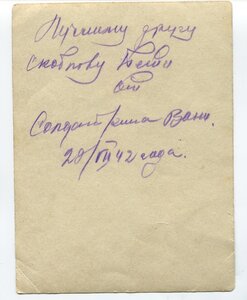 Лучшему другу
Скобпову Гене
от
Солдаткина Вани.
20/VII 42 года.